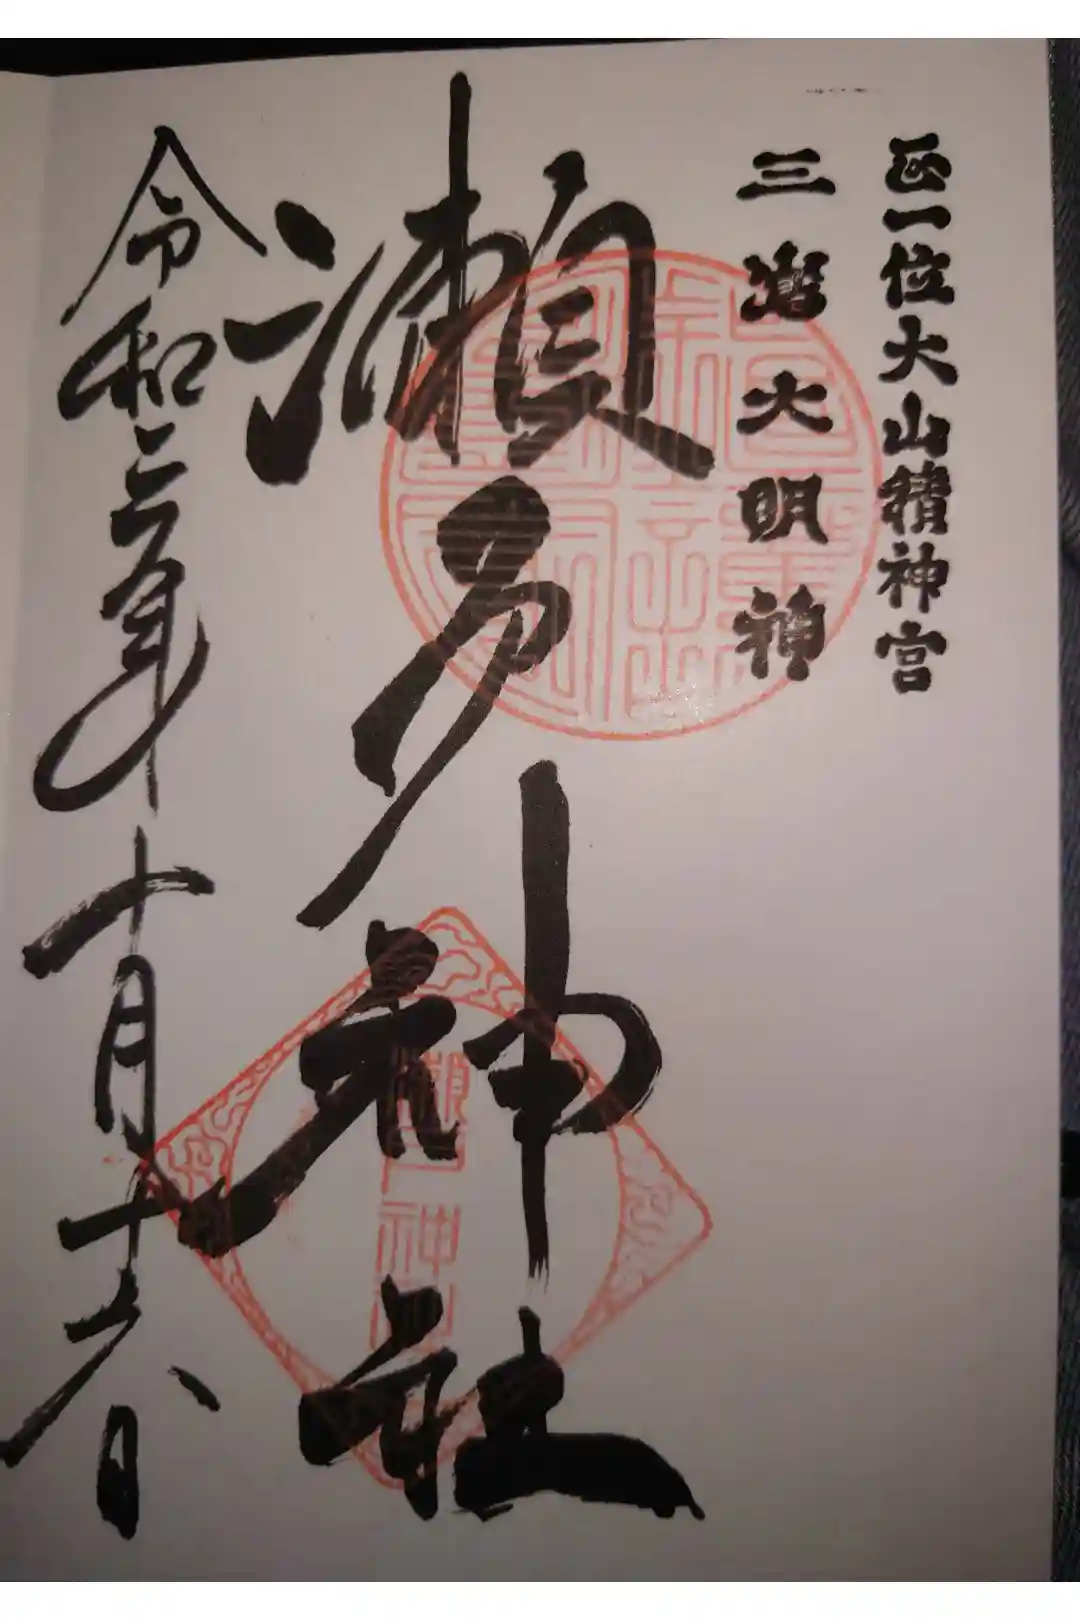 正一位大山積神宮
三嶌大明神
瀬戸神社
令和六年十月十六日